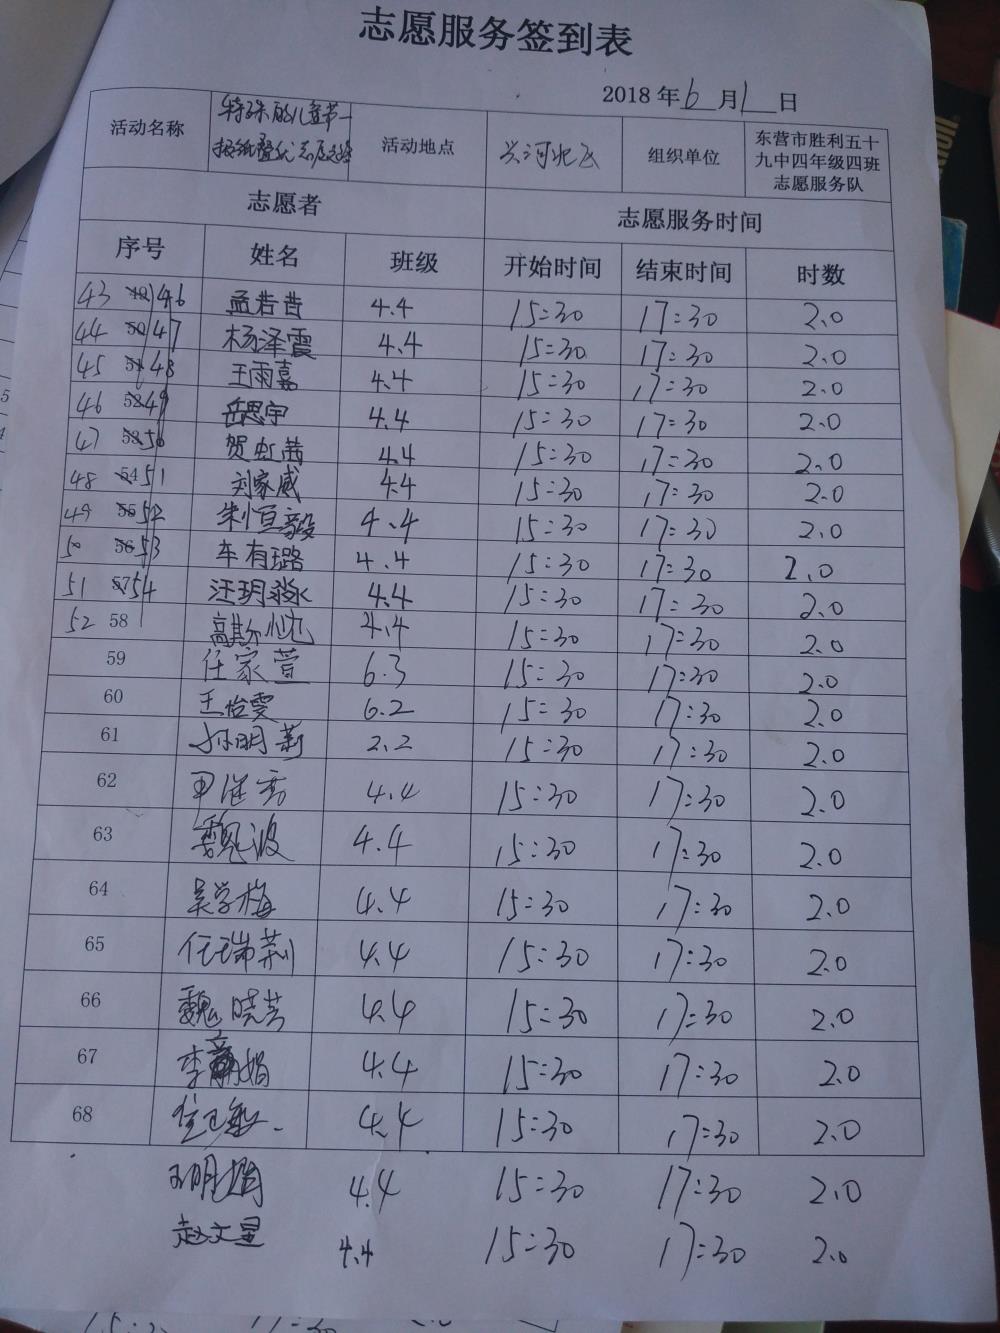 志愿服务签到表
2018年6月1日
活动名称 特殊的儿童节一 活动地点 兴河北区 组织单位 东营市胜利五十
九中四年级四班
志愿服务队
志愿者 志愿服务时间
序号 姓名 班级 开始时间 结束时间 时数
43 49 46 孟若昔 4.4 15:30 17:30 2.0
44 50 47 杨泽霞 4.4 15:30 17:30 2.0
45 51 48 王雨嘉 4.4 15:30 17:30 2.0
46 52 49 岳思宇 4.4 15:30 17:30 2.0
47 53 50 贺虹茜 4.4 15:30 17:30 2.0
48 54 51 刘家威 4.4 15:30 17:30 2.0
49 55 52 朱恒毅 4.4 15:30 17:30 2.0
50 56 53 车有璐 4.4 15:30 17:30 2.0
51 57 54 汪玥淼 4.4 15:30 17:30 2.0
52 58 高斯 4.4 15:30 17:30 2.0
59 任家萱 6.3 15:30 17:30 2.0
60 王怡雯 6.2 15:30 17:30 2.0
61 孙明莉 2.2 15:30 17:30 2.0
62 4.4 15:30 17:30 2.0
63 魏波 4.4 15:30 17:30 2.0
64 吴学梅 4.4 15:30 17:30 2.0
65 任瑞荆 4.4 15:30 17:30 2.0
66 魏晓芳 4.4 15:30 17:30 2.0
67 李娟 4.4 15:30 17:30 2.0
68 4.4 15:30 17:30 2.0
王明娟 4.4 15:30 17:30 2.0
赵文星 4.4 15:30 17:30 2.0
15:30 17:30